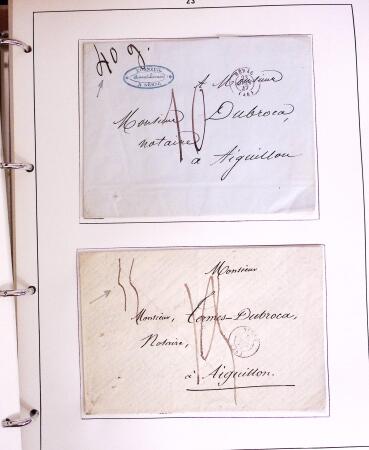 23
40 g.
A Monsieur
Monsieur Dubroca,
notaire
à Aiguillon
10
Monsieur
Monsieur, Comes-Dubroca,
Notaire,
à Aiguillon.